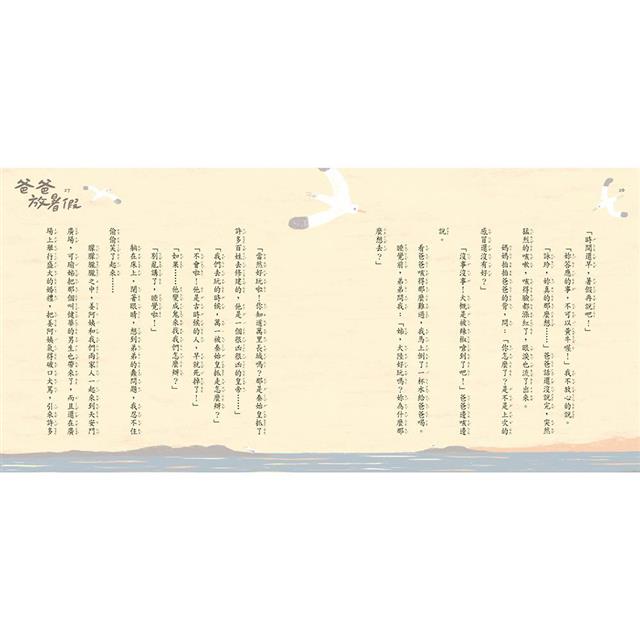 「時間還早，暑假再說吧！」
「妳答應的事，不可以黃牛喔！」我不放心的說。
「詠玲，妳真的那麼想……」爸爸話還沒說完，突然
猛烈的咳嗽，咳得臉都漲紅了，眼淚也流了出來。
媽媽拍拍爸爸的背，問：「你怎麼了？是不是上次的
感冒還沒有好？」
「沒事沒事！大概是被辣椒嗆到了吧！」爸爸邊咳邊
說。
看爸爸咳得那麼難過，我馬上倒了一杯水給爸爸喝。
睡覺前，弟弟問我：「姊，大陸好玩嗎？妳為什麼那
麼想去？」
28
爸爸放暑假
27
「當然好玩啦！你知道萬里長城嗎？那是秦始皇抓了
許多百姓去修建的，他是一個很凶很凶的皇帝……」
「我們去玩的時候，萬一被秦始皇抓走怎麼辦？」
「不會啦！他是古時候的人，早就死掉了！」
「如果……他變成鬼來找我們怎麼辦？」
「別亂講了，睡覺啦！」
躺在床上，閉著眼睛，想到弟弟的蠢問題，我忍不住
偷偷笑了起來……
朦朦朧朧之中，姜阿姨和我們兩家人一起來到天安門
廣場，可瑜姊把那個叫健華的男生也帶來了，而且還在廣
場上舉行盛大的婚禮，把姜阿姨氣得破口大罵，引來許多